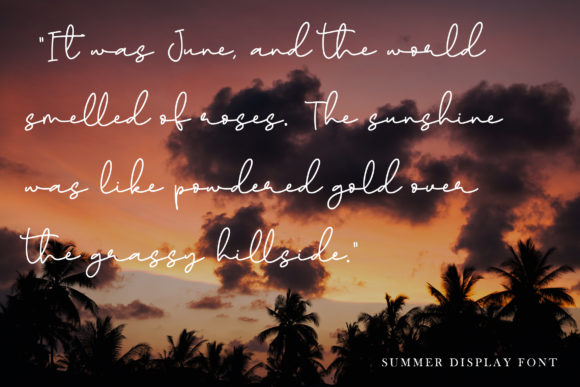 "It was June, and the world
smelled of roses. The sunshine
was like powdered gold over
the grassy hillside."
SUMMER DISPLAY FONT